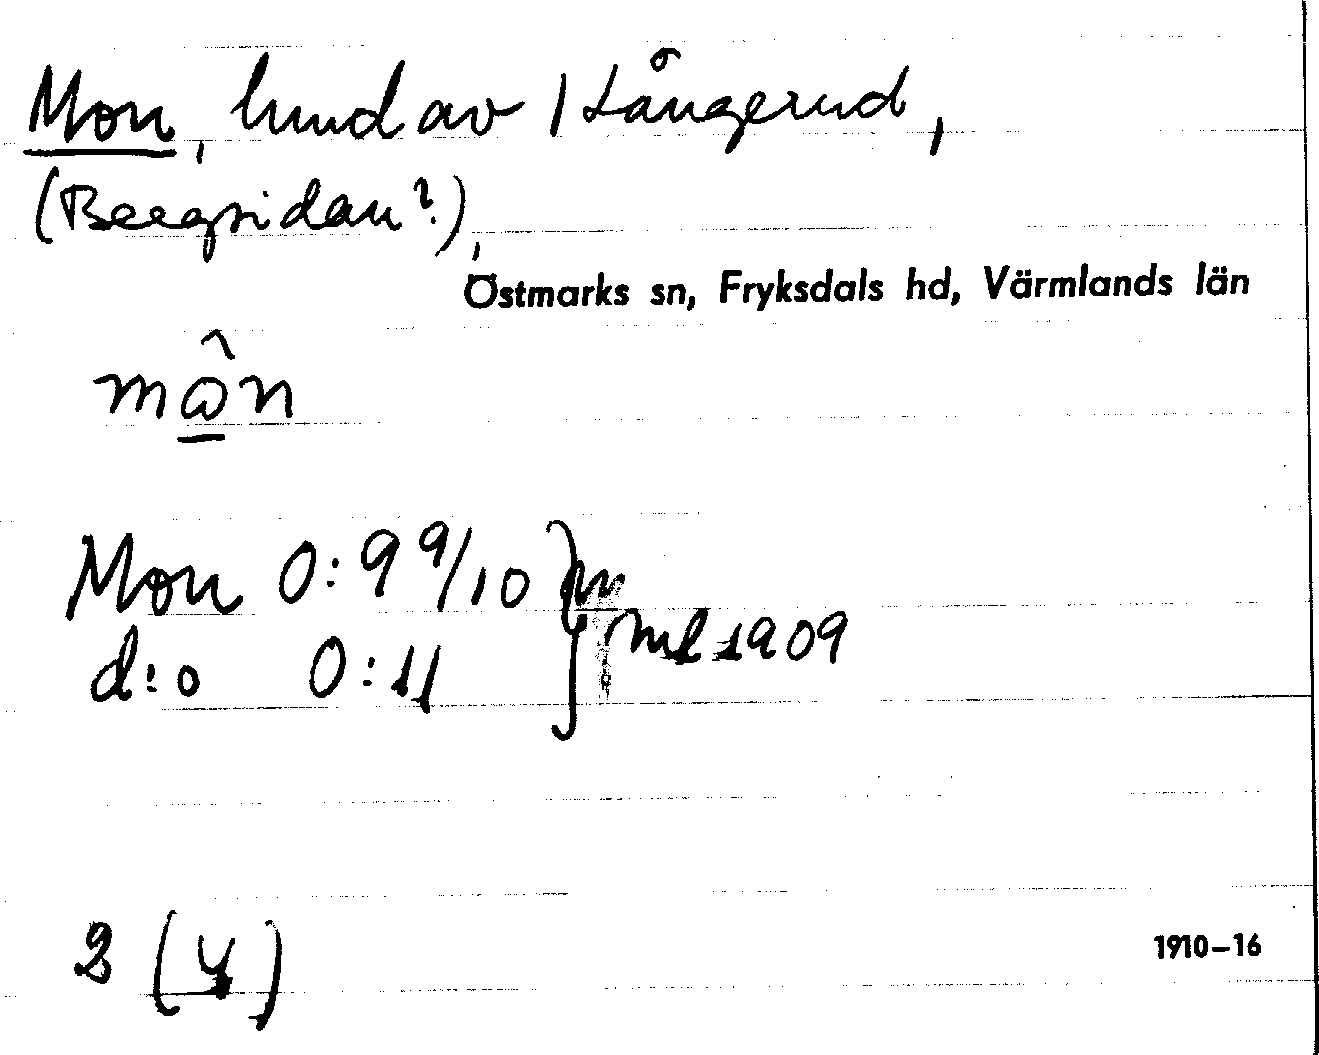 Mon, hmd av 1 Långerud,
(Bergsidan?),
Östmarks sn, Fryksdals hd, Värmlands län
mɷ̂n
Mon 0:9 9/10 }
d:o 0:11 } ml 1909
2 (4)
1910–16